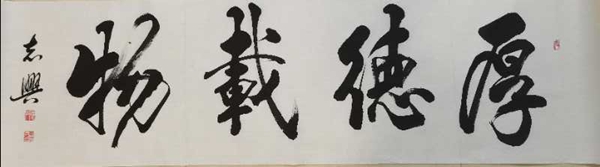 厚德載物
志興